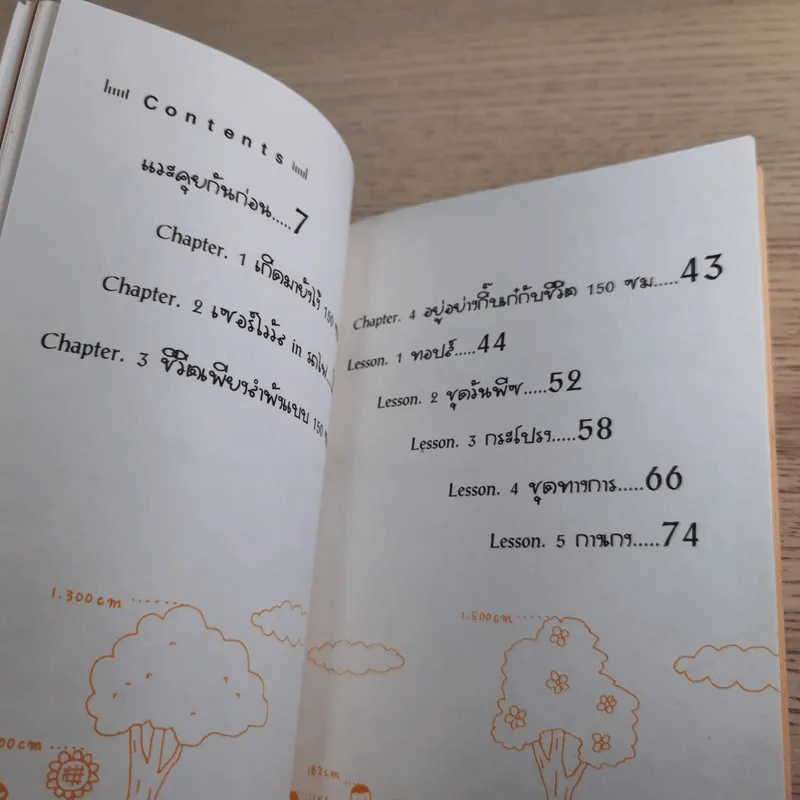 Contents
แวะคุยกันก่อน.....7
Chapter. 1 เกิดมายังไง 150
Chapter. 2 เซอร์ไวว์ส in รถไฟ...
Chapter. 3 ชีวิตเพียงลำพังแบบ 150
Chapter. 4 อยู่อย่างกิ๊บเก๋กับชีวิต 150 ซม.....43
Lesson. 1 ทอปส์.....44
Lesson. 2 ชุดวันพีซ.....52
Lesson. 3 กระโปรง.....58
Lesson. 4 ชุดทางการ.....66
Lesson. 5 กางเกง.....74
1.300cm
1.500cm
00cm
182cm